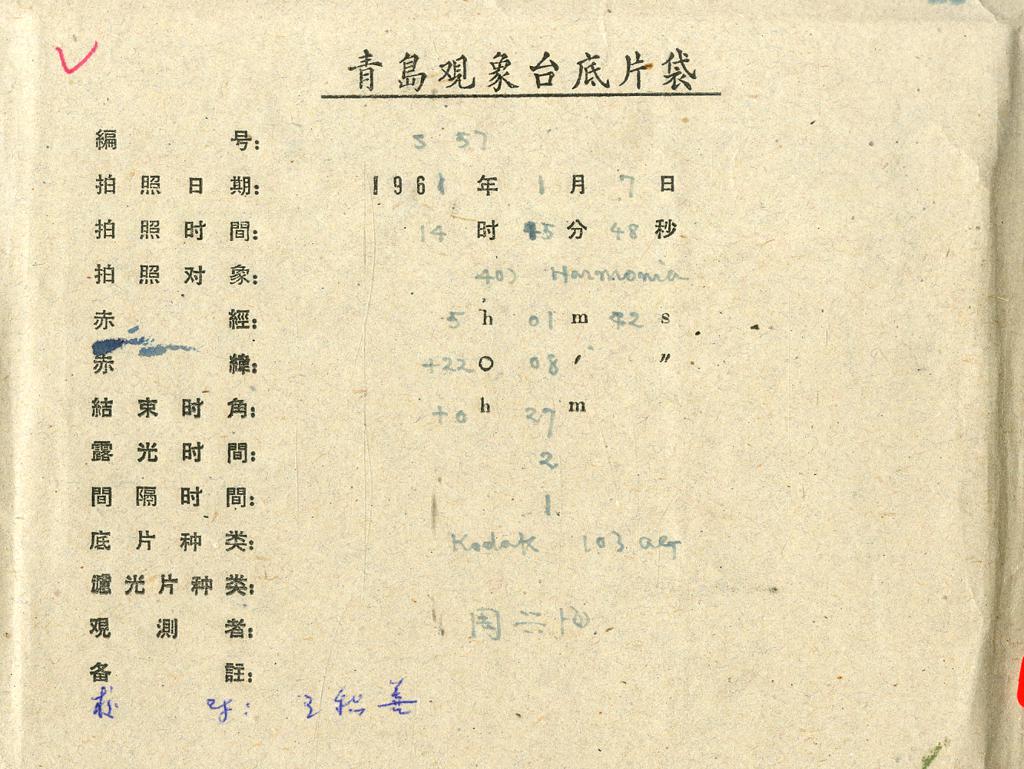 青島观象台底片袋
編号: S 57
拍照日期: 1961年1月7日
拍照时間: 14时45分48秒
拍照对象: 40) Harmonia
赤經: 5h 01m 42s
赤緯: +22° 08′ ″
結束时角: +0h 27m
露光时間: 2
間隔时間: 1
底片种类: Kodak 103 aG
濾光片种类:
观測者: 周
备註:
校对: 王积善